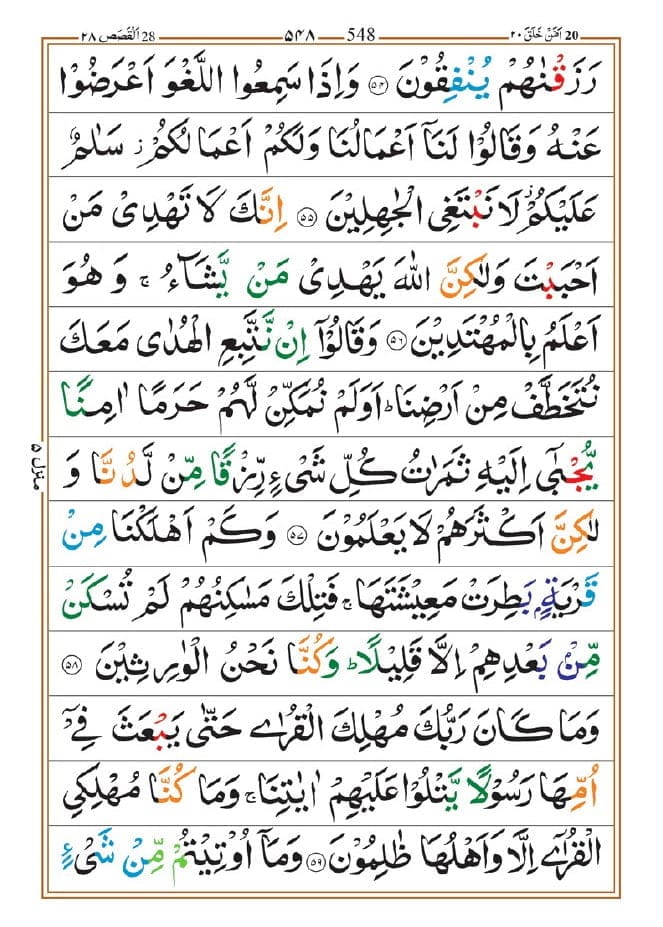 اَمَّنْ خَلَقَ ٢٠ 20 548 ٥٤٨ 28 اَلْقَصَص ٢٨
رَزَقْنٰهُمْ يُنْفِقُوْنَ ۝٥٤ وَاِذَا سَمِعُوا اللَّغْوَ اَعْرَضُوْا
عَنْهُ وَقَالُوْا لَنَاۤ اَعْمَالُنَا وَلَكُمْ اَعْمَالُكُمْ ۚ سَلٰمٌ
عَلَيْكُمْ ۚ لَا نَبْتَغِى الْجٰهِلِيْنَ ۝٥٥ اِنَّكَ لَا تَهْدِىْ مَنْ
اَحْبَبْتَ وَلٰكِنَّ اللّٰهَ يَهْدِىْ مَنْ يَّشَآءُ ۚ وَ هُوَ
اَعْلَمُ بِالْمُهْتَدِيْنَ ۝٥٦ وَقَالُوْۤا اِنْ نَّتَّبِعِ الْهُدٰى مَعَكَ
نُتَخَطَّفْ مِنْ اَرْضِنَا ؕ اَوَلَمْ نُمَكِّنْ لَّهُمْ حَرَمًا اٰمِنًا
يُّجْبٰٓى اِلَيْهِ ثَمَرٰتُ كُلِّ شَىْءٍ رِّزْقًا مِّنْ لَّدُنَّا وَ
لٰكِنَّ اَكْثَرَهُمْ لَا يَعْلَمُوْنَ ۝٥٧ وَكَمْ اَهْلَكْنَا مِنْ
قَرْيَةٍۭ بَطِرَتْ مَعِيْشَتَهَا ۚ فَتِلْكَ مَسٰكِنُهُمْ لَمْ تُسْكَنْ
مِّنْۢ بَعْدِهِمْ اِلَّا قَلِيْلًا ؕ وَكُنَّا نَحْنُ الْوٰرِثِيْنَ ۝٥٨
وَمَا كَانَ رَبُّكَ مُهْلِكَ الْقُرٰى حَتّٰى يَبْعَثَ فِىْۤ
اُمِّهَا رَسُوْلًا يَّتْلُوْا عَلَيْهِمْ اٰيٰتِنَا ۚ وَمَا كُنَّا مُهْلِكِى
الْقُرٰٓى اِلَّا وَاَهْلُهَا ظٰلِمُوْنَ ۝٥٩ وَمَاۤ اُوْتِيْتُمْ مِّنْ شَىْءٍ
منزل ٥